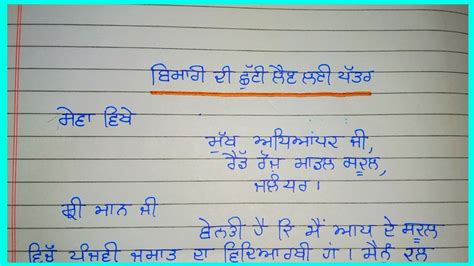 ਬਿਮਾਰੀ ਦੀ ਛੁੱਟੀ ਲੈਣ ਲਈ ਪੱਤਰ
ਸੇਵਾ ਵਿਖੇ
ਮੁੱਖ ਅਧਿਆਪਕ ਜੀ,
ਰੈੱਡ ਰੋਜ਼ ਮਾਡਲ ਸਕੂਲ,
ਜਲੰਧਰ।
ਸ਼੍ਰੀ ਮਾਨ ਜੀ
ਬੇਨਤੀ ਹੈ ਕਿ ਮੈਂ ਆਪ ਦੇ ਸਕੂਲ
ਵਿੱਚ ਪੰਜਵੀਂ ਜਮਾਤ ਦਾ ਵਿਦਿਆਰਥੀ ਹਾਂ। ਮੈਨੂੰ ਕੱਲ